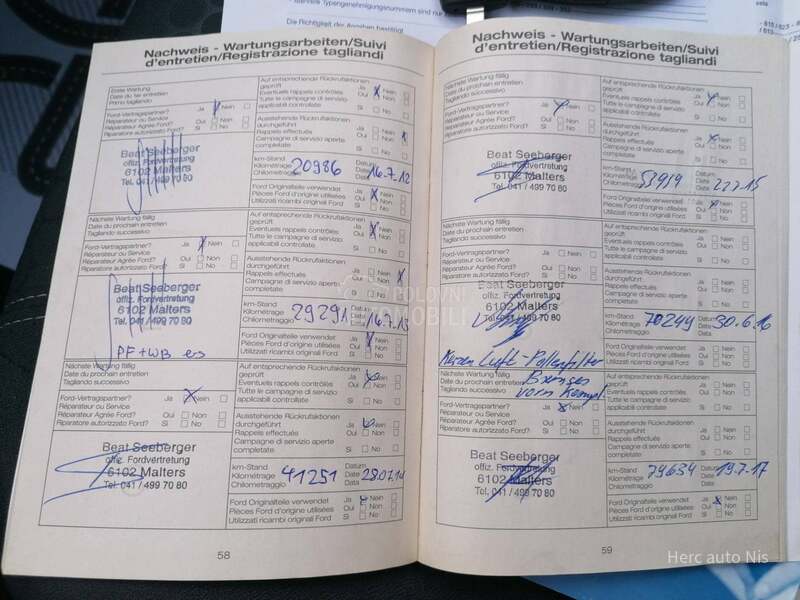 Nachweis - Wartungsarbeiten/Suivi
d'entretien/Registrazione tagliandi
Erste Wartung
Date du 1er entretien
Primo tagliando
Ford-Vertragspartner? Ja Nein
Réparateur ou Service
Réparateur Agrée Ford? Oui Non
Réparatore autorizzato Ford? Si No
Beat Seeberger
offiz. Fordvertretung
6102 Malters
Tel. 041 / 499 70 80
Auf entsprechende Rückrufaktionen
geprüft Ja Nein
Eventuels rappels contrôlés Oui Non
Tutte le campagne di servizio
applicabili controllate Si No
Ausstehende Rückrufaktionen
durchgeführt Ja Nein
Rappels effectués Oui Non
Campagne di servizio aperte
completate Si No
km-Stand Datum
Kilométrage 20986 Date 16.7.12
Chilometraggio Data
Ford Originalteile verwendet Ja Nein
Pièces Ford d'origine utilisées Oui Non
Utilizzati ricambi originali Ford Si No
Nächste Wartung fällig
Date du prochain entretien
Tagliando successivo
Ford-Vertragspartner? Ja Nein
Réparateur ou Service
Réparateur Agrée Ford? Oui Non
Réparatore autorizzato Ford? Si No
Beat Seeberger
offiz. Fordvertretung
6102 Malters
Tel. 041 / 499 70 80
PF + WB ers
Auf entsprechende Rückrufaktionen
geprüft Ja Nein
Eventuels rappels contrôlés Oui Non
Tutte le campagne di servizio
applicabili controllate Si No
Ausstehende Rückrufaktionen
durchgeführt Ja Nein
Rappels effectués Oui Non
Campagne di servizio aperte
completate Si No
km-Stand Datum
Kilométrage 29291 Date 16.7.13
Chilometraggio Data
Ford Originalteile verwendet Ja Nein
Pièces Ford d'origine utilisées Oui Non
Utilizzati ricambi originali Ford Si No
Nächste Wartung fällig
Date du prochain entretien
Tagliando successivo
Ford-Vertragspartner? Ja Nein
Réparateur ou Service
Réparateur Agrée Ford? Oui Non
Réparatore autorizzato Ford? Si No
Beat Seeberger
offiz. Fordvertretung
6102 Malters
Tel. 041 / 499 70 80
Auf entsprechende Rückrufaktionen
geprüft Ja Nein
Eventuels rappels contrôlés Oui Non
Tutte le campagne di servizio
applicabili controllate Si No
Ausstehende Rückrufaktionen
durchgeführt Ja Nein
Rappels effectués Oui Non
Campagne di servizio aperte
completate Si No
km-Stand Datum
Kilométrage 41251 Date 28.07.14
Chilometraggio Data
Ford Originalteile verwendet Ja Nein
Pièces Ford d'origine utilisées Oui Non
Utilizzati ricambi originali Ford Si No
58
Nachweis - Wartungsarbeiten/Suivi
d'entretien/Registrazione tagliandi
Nächste Wartung fällig
Date du prochain entretien
Tagliando successivo
Ford-Vertragspartner? Ja Nein
Réparateur ou Service
Réparateur Agrée Ford? Oui Non
Réparatore autorizzato Ford? Si No
Beat Seeberger
offiz. Fordvertretung
6102 Malters
Tel. 041 / 499 70 80
Auf entsprechende Rückrufaktionen
geprüft Ja Nein
Eventuels rappels contrôlés Oui Non
Tutte le campagne di servizio
applicabili controllate Si No
Ausstehende Rückrufaktionen
durchgeführt Ja Nein
Rappels effectués Oui Non
Campagne di servizio aperte
completate Si No
km-Stand Datum
Kilométrage 53959 Date 22.7.15
Chilometraggio Data
Ford Originalteile verwendet Ja Nein
Pièces Ford d'origine utilisées Oui Non
Utilizzati ricambi originali Ford Si No
Nächste Wartung fällig
Date du prochain entretien
Tagliando successivo
Ford-Vertragspartner? Ja Nein
Réparateur ou Service
Réparateur Agrée Ford? Oui Non
Réparatore autorizzato Ford? Si No
Beat Seeberger
offiz. Fordvertretung
6102 Malters
Tel. 041 / 499 70 80
Auf entsprechende Rückrufaktionen
geprüft Ja Nein
Eventuels rappels contrôlés Oui Non
Tutte le campagne di servizio
applicabili controllate Si No
Ausstehende Rückrufaktionen
durchgeführt Ja Nein
Rappels effectués Oui Non
Campagne di servizio aperte
completate Si No
km-Stand Datum
Kilométrage 70249 Date 30.6.16
Chilometraggio Data
Ford Originalteile verwendet Ja Nein
Pièces Ford d'origine utilisées Oui Non
Utilizzati ricambi originali Ford Si No
Kerzen Luft-Pollenfilter
Bremsen
vorn kompl
Nächste Wartung fällig
Date du prochain entretien
Tagliando successivo
Ford-Vertragspartner? Ja Nein
Réparateur ou Service
Réparateur Agrée Ford? Oui Non
Réparatore autorizzato Ford? Si No
Beat Seeberger
offiz. Fordvertretung
6102 Malters
Tel. 041 / 499 70 80
Auf entsprechende Rückrufaktionen
geprüft Ja Nein
Eventuels rappels contrôlés Oui Non
Tutte le campagne di servizio
applicabili controllate Si No
Ausstehende Rückrufaktionen
durchgeführt Ja Nein
Rappels effectués Oui Non
Campagne di servizio aperte
completate Si No
km-Stand Datum
Kilométrage 79634 Date 19.7.17
Chilometraggio Data
Ford Originalteile verwendet Ja Nein
Pièces Ford d'origine utilisées Oui Non
Utilizzati ricambi originali Ford Si No
59
Herc auto Nis